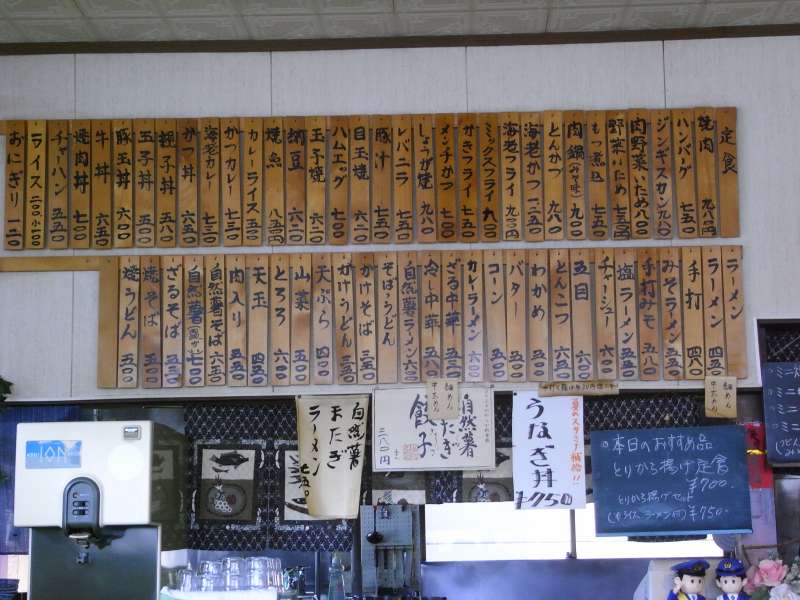 定食
焼肉 九八〇円
ハンバーグ 七五〇
ジンギスカン 九八〇
肉野菜いため 八〇〇
野菜いため 七五〇
もつ煮込 七五〇
肉鍋(みそ味) 九〇〇
とんかつ 九〇〇
海老かつ 一二五〇
海老フライ 九五〇円
ミックスフライ 九〇〇
かきフライ 七五〇
メンチかつ 七五〇
しょうが焼 九八〇
レバニラ 七五〇
豚汁 七五〇
目玉焼 六二〇
ハムエッグ 七〇〇
玉子焼 六二〇
納豆 六二〇
焼魚 八五〇円
カレーライス 五五〇
かつカレー 七三〇
海老カレー 七三〇
かつ丼 六五〇
親子丼 五八〇
玉子丼 五〇〇
豚玉丼 六〇〇
牛丼 六五〇
焼肉丼 七〇〇
チャーハン 五五〇
ライス 二〇〇 小一〇〇
おにぎり 一二〇
ラーメン 四五〇
手打ラーメン 四八〇
みそラーメン 五五〇
手打みそ 五八〇
塩ラーメン 五五〇
チャーシュー 六五〇
五目 六〇〇
とんこつ 六五〇
わかめ 五五〇
バター 五五〇
コーン 五〇〇
カレーラーメン 六〇〇
ざる中華 五五〇
冷し中華 五五〇
自然薯ラーメン 六五〇
そば・うどん
かけそば 三五〇
かけうどん 三五〇
天ぷら 四五〇
山菜 四〇〇
とろろ 六〇〇
天玉 四五〇
肉入り 五五〇
自然薯そば 六五〇
自然薯 七〇〇
ざるそば 五五〇
焼そば 五五〇
焼うどん 五〇〇
自然薯
またぎ
ラーメン
七五〇
自然薯
またぎ
餃子
三八〇円
夏のスタミナ補給!!
うなぎ丼
¥950
本日のおすすめ品
とりから揚げ定食
¥700.
とりから揚げセット
¥750.
ION